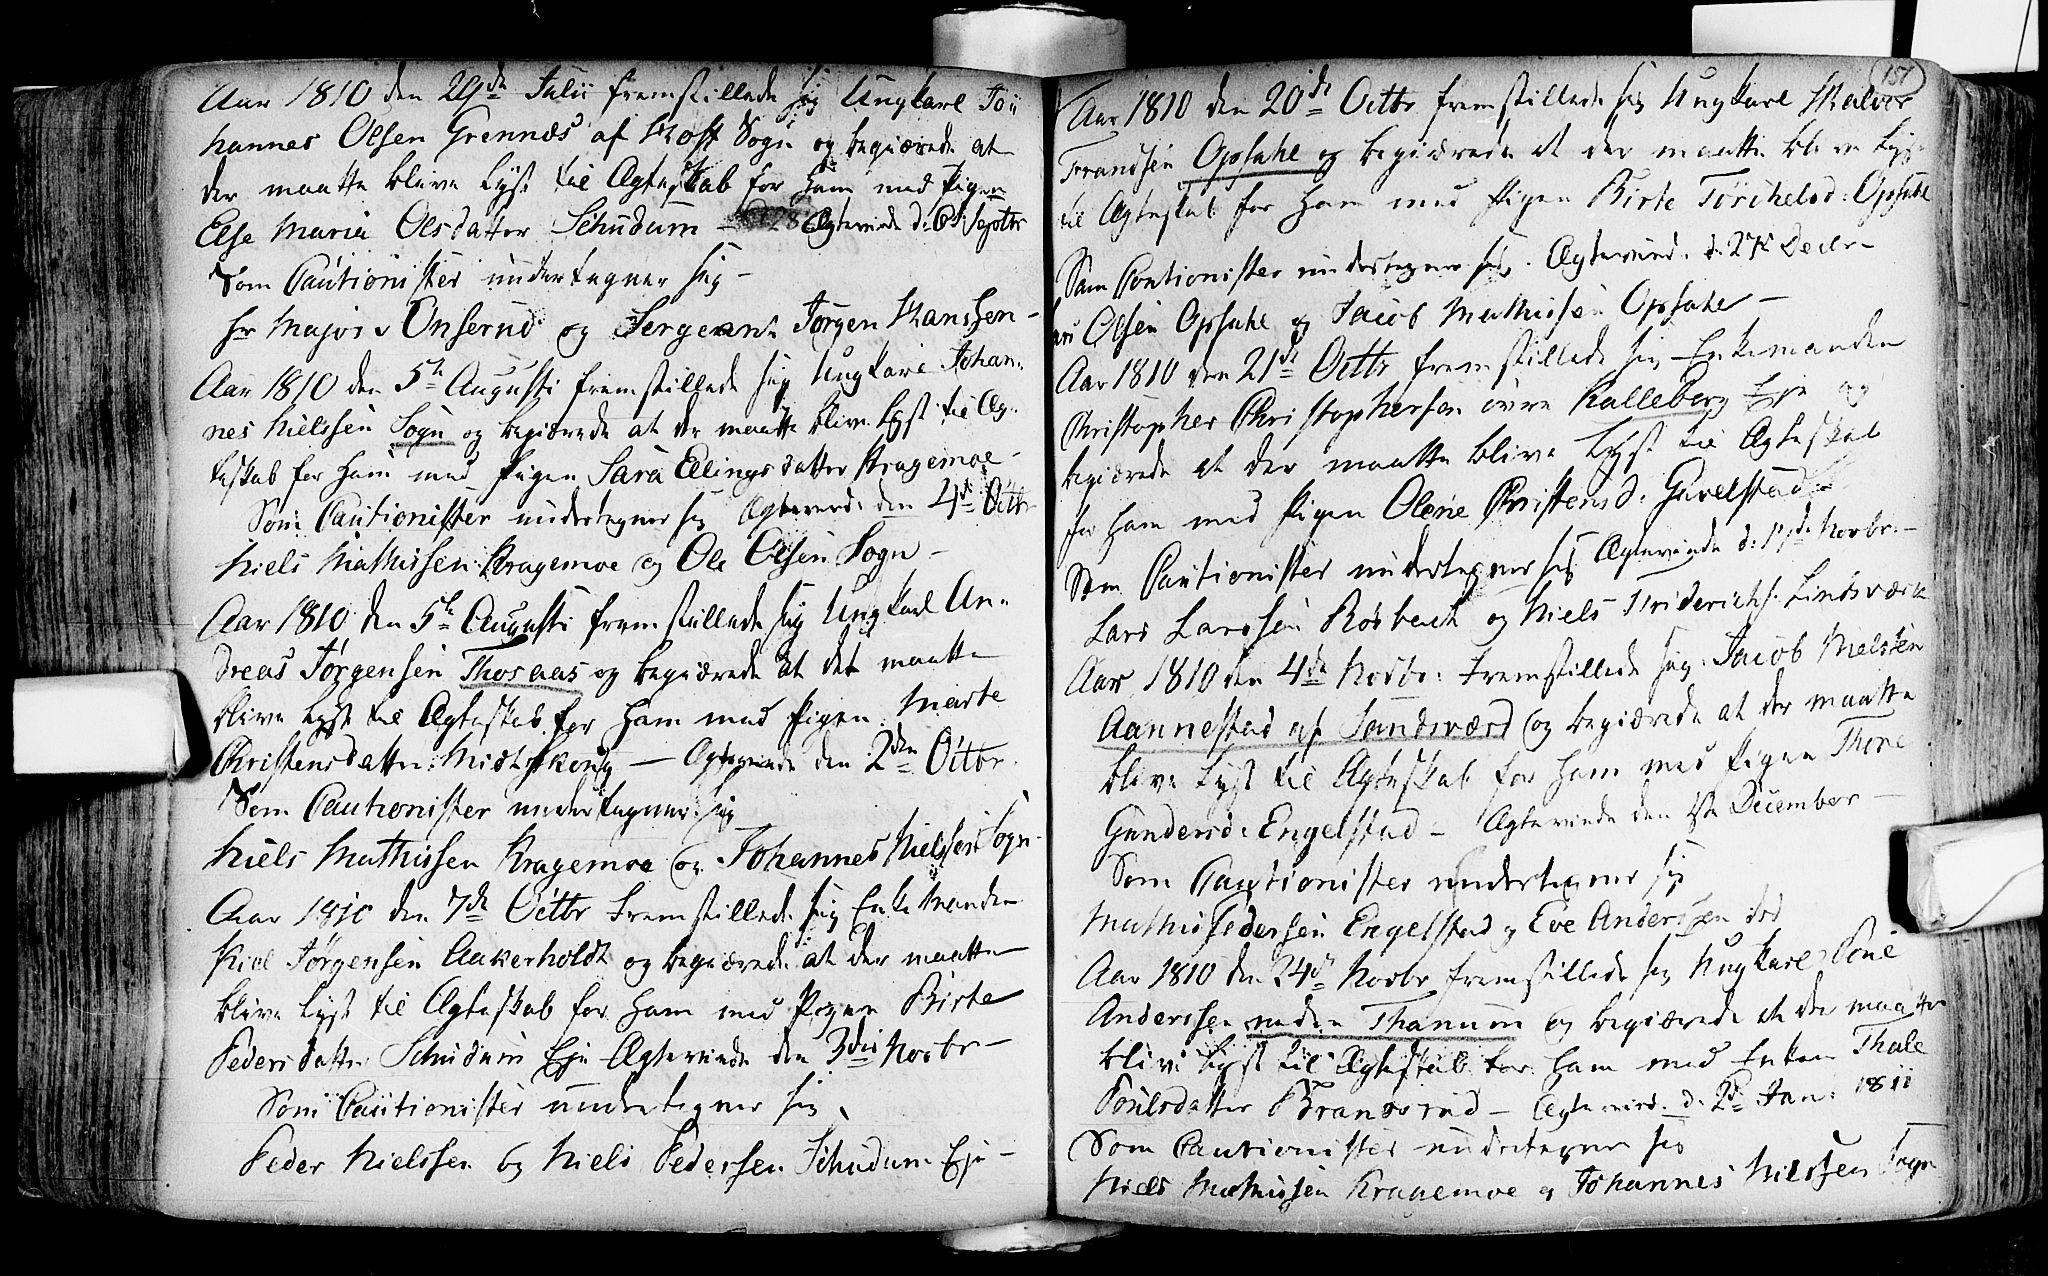 Aar 1810 den 29de Julii fremstillede sig Ungkarl Jo„
hannes Olsen Grennæs af Hoff Sogn og begiærede at
der maatte blive Lyst til Ægteskab for ham med Pigen
Else Maria Olsdatter Schudum – Ægteviede d: 6t Septbr
Som Cautionister undertegner sig –
Hr Major v Unserud og Sergeant Jørgen Hanssen –
Aar 1810 den 5te Augusti fremstillede sig Ungkarl Johan„
nes Nielssen Sogn og begiærede at der maatte blive Lyst til Æg„
teskab for ham med Pigen Sara Ellingsdatter Kragemoe –
Som Cautionister undertegner sig Ægteviede den 4de Octbr
Niels Mathissen Kragemoe og Ole Olsen Sogn –
Aar 1810 den 5te Augusti fremstillede sig Ungkarl An„
dreas Jørgensen Thoraas og begiærede at det maatte
blive Lyst til Ægteskab for ham med Pigen Marte
Christensdatter Midtskoug – Ægteviede den 2den Octbr.
Som Cautionister undertegner sig
Niels Mathissen Kragemoe og Johannes Nielssen Sogn –
Aar 1810 den 7de Octbr fremstillede sig Enke Manden
Kiel Jørgensen Aakerholdt og begiærede at der maatte
blive Lyst til Ægteskab for ham med Pigen Birte
Pedersdatter Schudum Eje Ægteviede den 3die Novbr –
Som Cautionister undertegner sig
Peder Nielssen og Niels Pedersen Schudum Eje –
151
Aar 1810 den 20de Octbr fremstillede sig Ungkarl Halvor
Frandsen Opsahl og begiærede at der maatte blive Lyst
til Ægteskab for ham med Pigen Birte Torchelsd: Opsahl
Som Cautionister undertegner sig. Ægteviede d. 27de Decbr –
Olsen Opsahl og Jacob Mathissen Opsahl –
Aar 1810 den 21de Octbr fremstillede sig Enkemanden
Christopher Christophersen øvre Kalleberg Eje og
begiærede at der maatte blive Lyst til Ægteskab
for ham med Pigen Olene Christensd: Gavelstad –
Som Cautionister undertegner sig Ægteviede d: Novbr. –
Lars Larssen Rosbach og Niels Friderichs. Lindsværk
Aar 1810 den 4de Novbr: fremstillede sig Jacob Nielssen
Aannestad af Sandsværd og begiærede at der maatte
blive Lyst til Ægteskab for ham med Pigen Thore
Gundersd: Engelstad – Ægteviede den December –
Som Cautionister undertegner sig
Mathis Pedersen Engelstad og Eve Anderssen ibd
Aar 1810 den 24de Novbr fremstillede sig Ungkarl Poul
Anderssen neden Thanum og begiærede at der maatte
blive Lyst til Ægteskab for ham med Enken Thale
Poulsdatter Bransrud – Ægteviede d. 2de Jan: 1811
Som Cautionister undertegner sig
Niels Mathissen Kragemoe og Johannes Nielssen Sogn